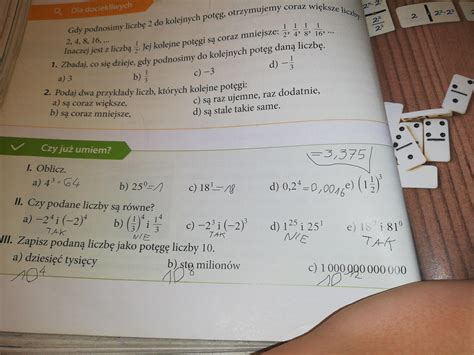 Dla dociekliwych
Gdy podnosimy liczbę 2 do kolejnych potęg, otrzymujemy coraz większe liczby:
2, 4, 8, 16, ...
Inaczej jest z liczbą 1/2. Jej kolejne potęgi są coraz mniejsze: 1/2, 1/4, 1/8, 1/16, ...
1. Zbadaj, co się dzieje, gdy podnosimy do kolejnych potęg daną liczbę.
a) 3 b) 1/3 c) −3 d) −1/3
2. Podaj dwa przykłady liczb, których kolejne potęgi:
a) są coraz większe, c) są raz ujemne, raz dodatnie,
b) są coraz mniejsze, d) są stale takie same.
Czy już umiem?
=3,375
I. Oblicz.
a) 4³=64 b) 25⁰=1 c) 18¹=18 d) 0,2⁴=0,0016 e) (1 1/2)³
II. Czy podane liczby są równe?
a) −2⁴ i (−2)⁴ b) (1/3)⁴ i 1⁴/3 c) −2³ i (−2)³ d) 1²⁵ i 25¹ e) i 81⁰
TAK NIE TAK NIE TAK
III. Zapisz podaną liczbę jako potęgę liczby 10.
a) dziesięć tysięcy b) sto milionów c) 1 000 000 000 000
10⁴ 10⁸ 10¹²